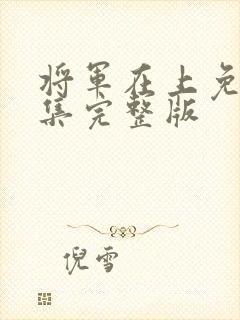 将军在上免
集完整版
倪雪